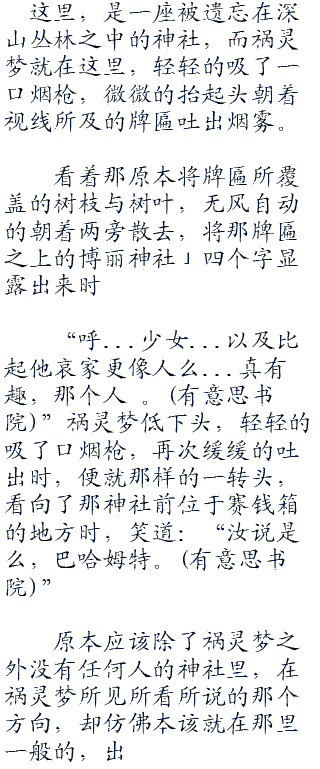 这里，是一座被遗忘在深
山丛林之中的神社，而祸灵
梦就在这里，轻轻的吸了一
口烟枪，微微的抬起头朝着
视线所及的牌匾吐出烟雾。
看着那原本将牌匾所覆
盖的树枝与树叶，无风自动
的朝着两旁散去，将那牌匾
之上的博丽神社」四个字显
露出来时
“呼...少女...以及比
起他哀家更像人么...真有
趣，那个人 。(有意思书
院)”祸灵梦低下头，轻轻的
吸了口烟枪，再次缓缓的吐
出时，便就那样的一转头，
看向了那神社前位于赛钱箱
的地方时，笑道：“汝说是
么，巴哈姆特。(有意思书
院)”
原本应该除了祸灵梦之
外没有任何人的神社里，在
祸灵梦所见所看所说的那个
方向，却仿佛本该就在那里
一般的，出